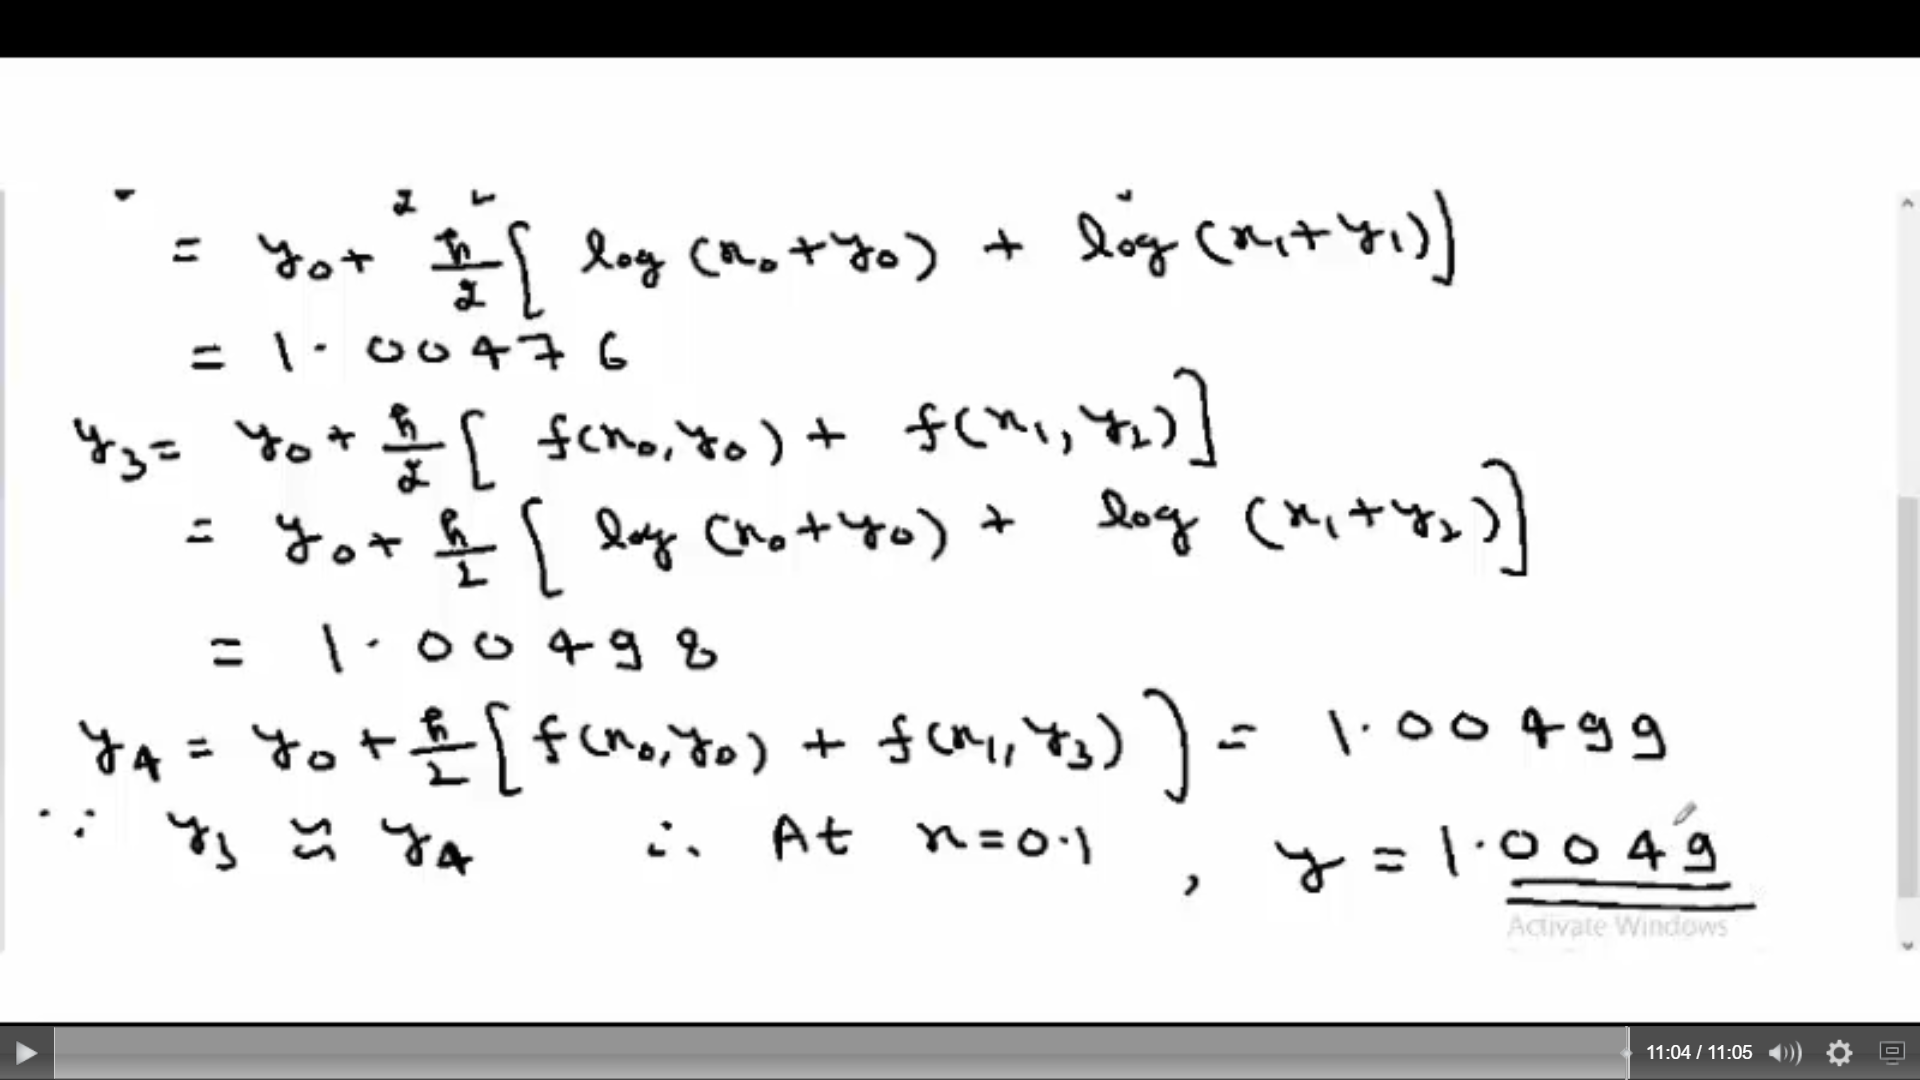 = y₀ + h/2 [ log (x₀ + y₀) + log (x₁ + y₁) ]
= 1.00476
y₃ = y₀ + h/2 [ f(x₀, y₀) + f(x₁, y₂) ]
= y₀ + h/2 [ log (x₀ + y₀) + log (x₁ + y₂) ]
= 1.00498
y₄ = y₀ + h/2 [ f(x₀, y₀) + f(x₁, y₃) ] = 1.00499
∵ y₃ ≈ y₄ ∴ At x = 0.1 , y = 1.0049
Activate Windows
11:04 / 11:05